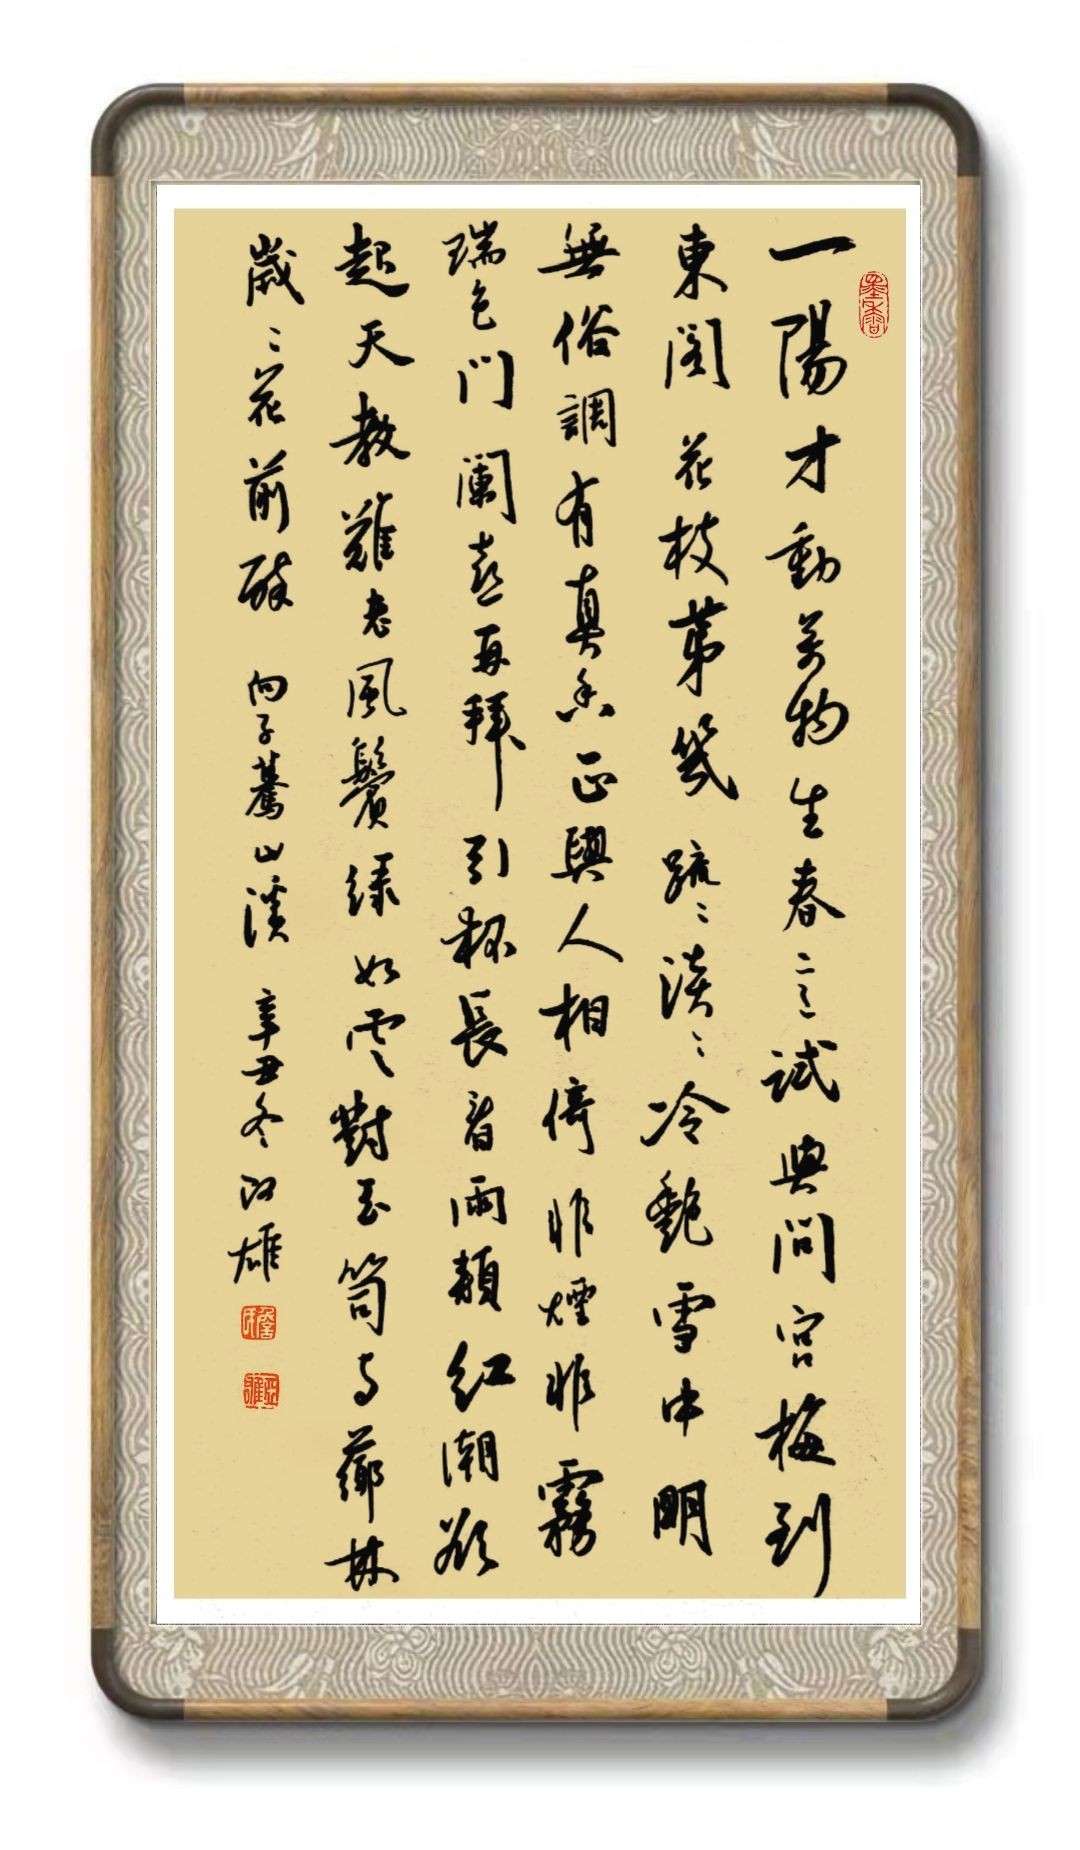 墨香
一陽才動萬物生春意試與問宮梅到
東閣花枝第幾疏〻淡〻冷艷雪中明
無俗調有真香正與人相倚非煙非霧
瑞色門闌喜再拜引杯長看兩頰紅潮欲
起天教難老風鬢綠如雲對玉筍与薌林
歲〻花前醉 向子驀山溪 辛丑冬 雄